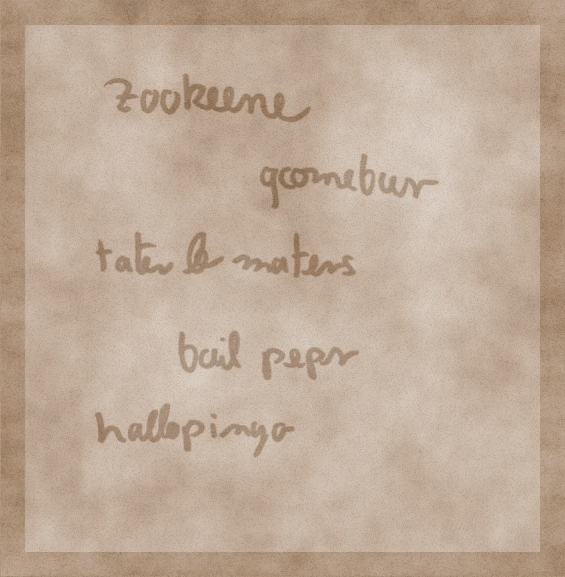 zookeene
qcomebur
tater le maters
bail pepr
hallopinyo